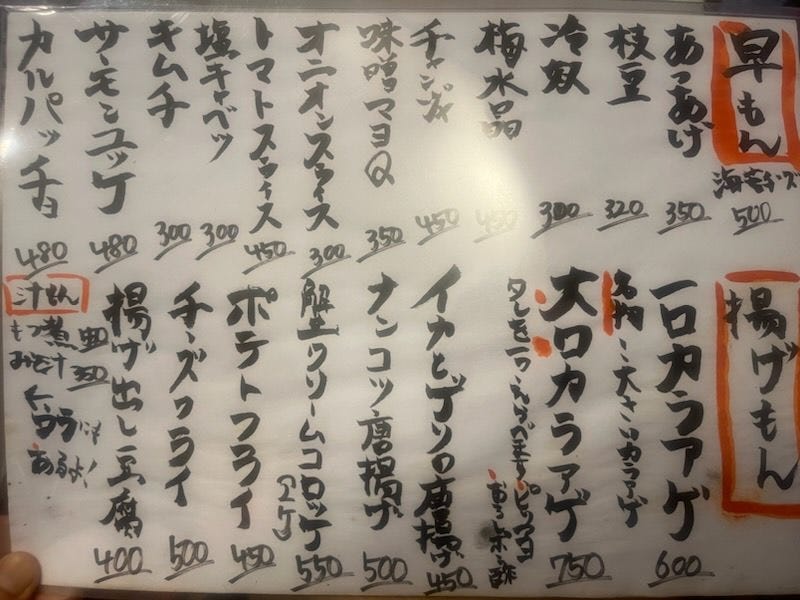 早もん
海苔チーズ
500
あつあげ
350
枝豆
320
冷奴
300
梅水晶
450
チャンジャ
450
味噌マヨQ
350
オニオンスライス
300
トマトスライス
450
塩キャベツ
300
キムチ
300
サーモンユッケ
480
カルパッチョ
480
揚げもん
一口カラアゲ
600
名物 大きいカラアゲ
大口カラアゲ
750
おろしポン酢
イカとゲソの唐揚げ
450
ナンコツ唐揚げ
500
蟹クリームコロッケ
(2ケ)
550
ポテトフライ
450
チーズフライ
500
揚げ出し豆腐
400
汁もん
もつ煮
みそ汁 350
←ウラにも
あるよ!